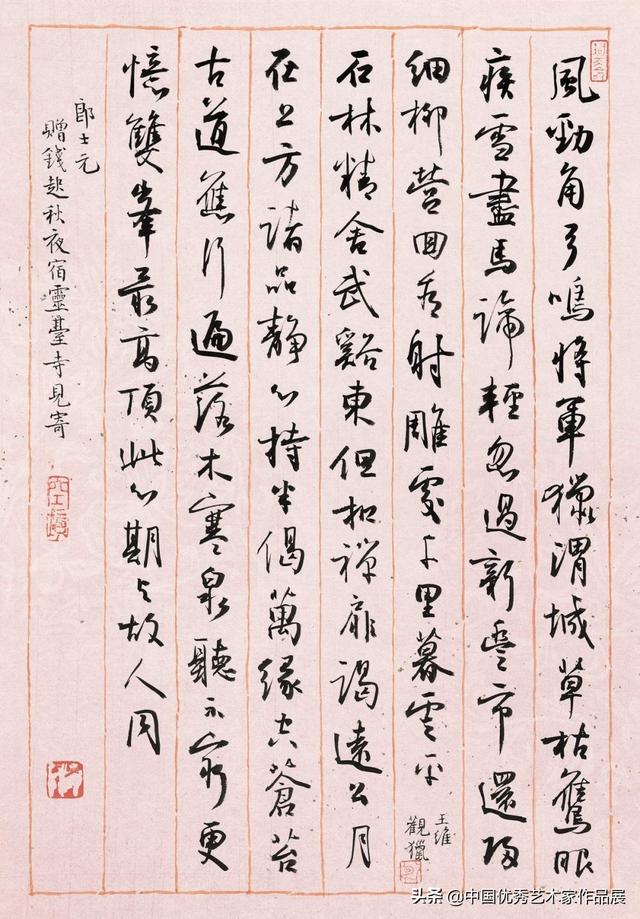 風勁角弓鳴將軍獵渭城草枯鷹眼
疾雪盡馬蹄輕忽過新豐市還歸
細柳營回看射雕處千里暮雲平
王維
觀獵
石林精舍武谿東但扣禅扉謁遠公月
在上方諸品靜心持半偈萬緣空蒼苔
古道應行遍落木寒泉聽不窮更
憶雙峯最高頂此心期与故人同
郎士元
贈錢起秋夜宿靈臺寺見寄
头条 @中国优秀艺术家作品展